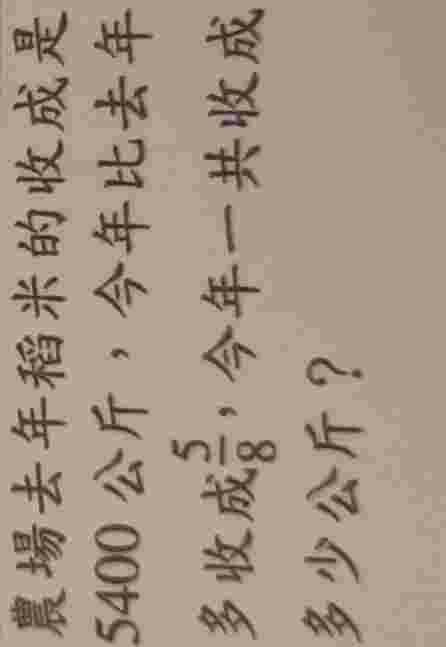 農場去年稻米的收成是
5400 公斤，今年比去年
多收成5/8，今年一共收成
多少公斤？